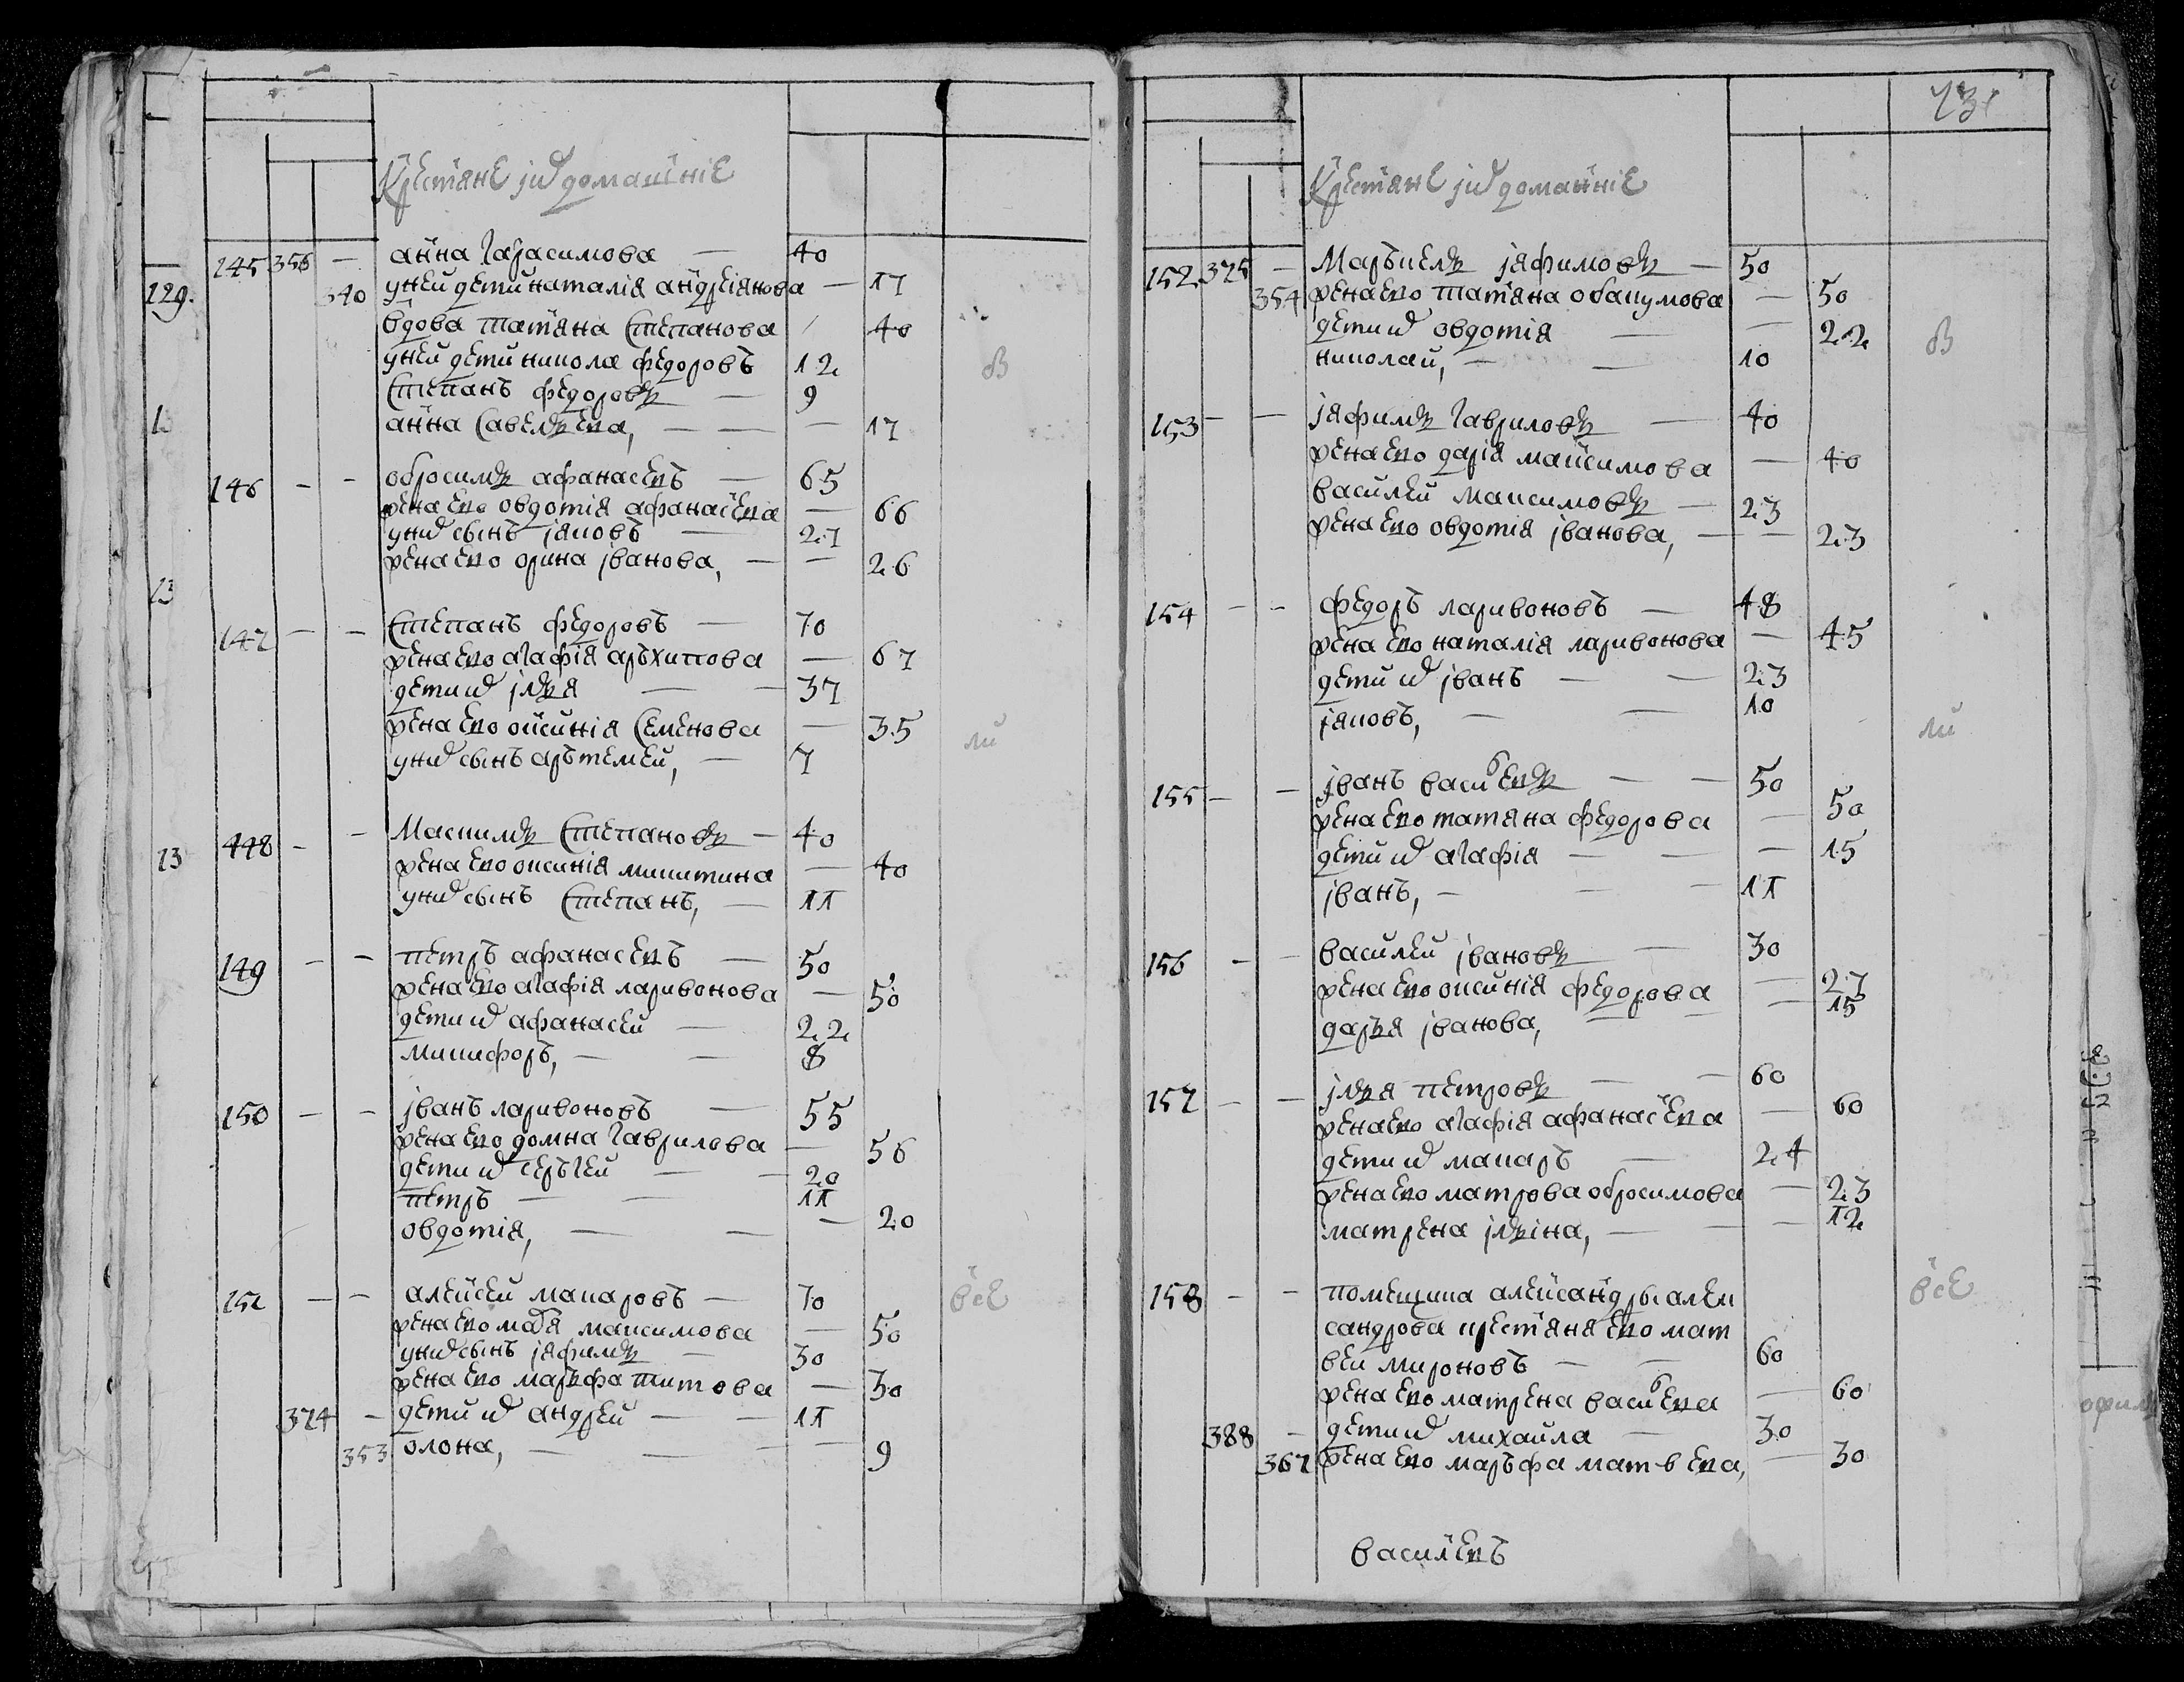 крестянЕ ихъ домашниЕ
145 356 — анна гарасимова — 40
340 у неи дети наталія андреіянова — 17
129. вдова татяна степанова 40
у неи дети никола федоровъ 12 в
степанъ федоровъ — 9
анна савельева, — — — 17
146 - - обросимъ афанасевъ — 65
жена ево овдотия афанасева — 66
у них сынъ iяковъ — 27
жена ево орина iванова, — — 26
147 — — степанъ федоровъ — 70
жена ево агафiя архипова — 67
дети их iлья — — 37
жена ево оксинiя семенова — 35 ли
у них сынъ артемеи, — 7
148 - - Максимъ степановъ — 40
жена ево оксинiя микитина — 40
у них сынъ степанъ, — 11
149 - - петръ афанасевъ — 50
жена ево агафiя ларивонова — 50
дети их афанасеи — 22
микифоръ, — — 8
150 — — iванъ ларивоновъ — 55
жена ево домна гаврилова — 56
дети их сергеи — — 20
петръ — — 11
овдотия, — — — 20
151 — — алексеи макаровъ — 70 всЕ
жена ево маря максимова — 50
у них сынъ iяфимъ — 30
жена ево марфа титова — 30
374 — дети их андреи — — 11
353 олона, — — — — 9
131
крестянЕ ихъ домашниЕ
152 375 — Маркелъ iяфимовъ — 50
354 жена ево татяна обакумова — 50
дети их овдотия — — 22 в
николаи, — — 10
153 — — iяфимъ гавриловъ — 40
жена ево дарiя максимова — 40
василеи максимовъ — 23
жена ево овдотия iванова, — — 23
154 - - федоръ ларивоновъ — 48
жена ево наталiя ларивонова — 45
дети их iванъ — — 23
iяковъ, — — 10 ли
155 — — iванъ васильевъ — — 50
жена ево татяна федорова — 50
дети их агафiя — — — 15
iванъ, — — — 11
156 - - василеи iвановъ — 30
жена ево оксинiя федорова — 27
дарья iванова, — — 15
157 — — iлья петровъ — — 60
жена ево агафiя афанасева — 60
дети их макаръ — 24
жена ево матрова обросимова — 23
матрена iльiна, — — — 12
158 - - помещика александры алек всЕ
сандрова крестяня ево мат
веи мироновъ — — 60
жена ево матрена васильева — 60
388 — дети их михаила — 30
367 жена ево марфа матвева, — 30
василевъ